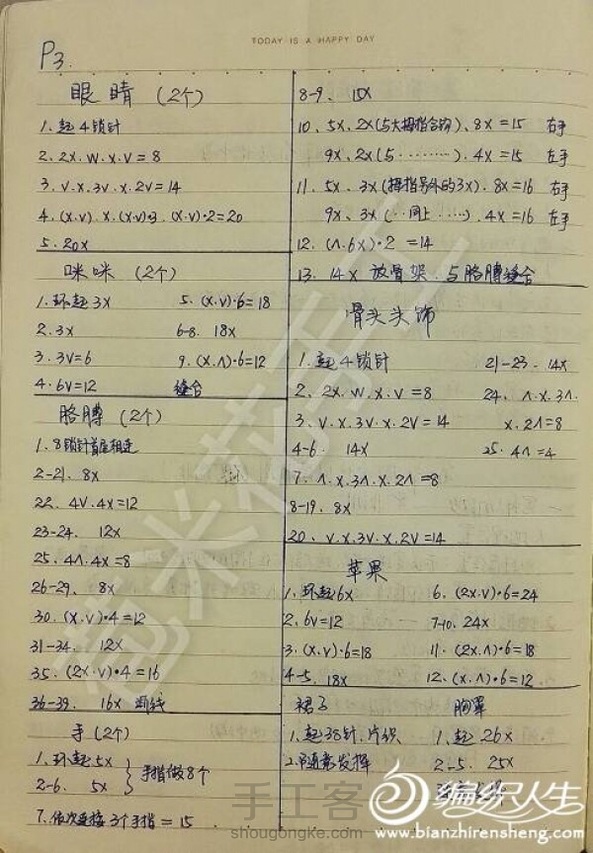 TODAY IS A HAPPY DAY
P3.
眼睛 (2个)
1. 起4锁针
2. 2X. W. X. V = 8
3. V. X. 3V. X. 2V = 14
4. (X.V). X. (X.V)•3. (X.V)•2 = 20
5. 20X
咪咪 (2个)
1. 环起3X
2. 3X
3. 3V=6
4. 6V=12
5. (X.V)•6=18
6-8. 18X
9. (X.Λ)•6=12
缝合
胳膊 (2个)
1. 8锁针首尾相连
2-21. 8X
22. 4V.4X=12
23-24. 12X
25. 4Λ.4X=8
26-29. 8X
30. (X.V)•4=12
31-34. 12X
35. (2X.V)•4=16
36-39. 16X 断线
手 (2个)
1. 环起5X
2-6. 5X
手指做8个
7. 依次连接3个手指=15
8-9. 15X
10. 5X、2X(与大拇指合钩)、8X=15 右手
9X、2X(与········)、4X=15 左手
11. 5X、3X(拇指另外的3X)、8X=16 右手
9X、3X(··同上·····)、4X=16 左手
12. (Λ.6X)•2=14
13. 14X 放骨架、与胳膊缝合
骨头头饰
1. 起4锁针
2. 2X. W. X. V=8
3. V. X. 3V. X. 2V=14
4-6. 14X
7. Λ. X. 3Λ. X. 2Λ=8
8-19. 8X
20. V. X. 3V. X. 2V=14
21-23. 14X
24. Λ. X. 3Λ.
X. 2Λ=8
25. 4Λ=4
苹果
1. 环起6X
2. 6V=12
3. (X.V)•6=18
4-5. 18X
6. (2X.V)•6=24
7-10. 24X
11. (2X.Λ)•6=18
12. (X.Λ)•6=12
裙子
1. 起38针、片织
2. 随意发挥
胸罩
1. 起26X
2-5. 25X
爱米花手工
手工客
shougongke.com
编织人生
www.bianzhirensheng.com